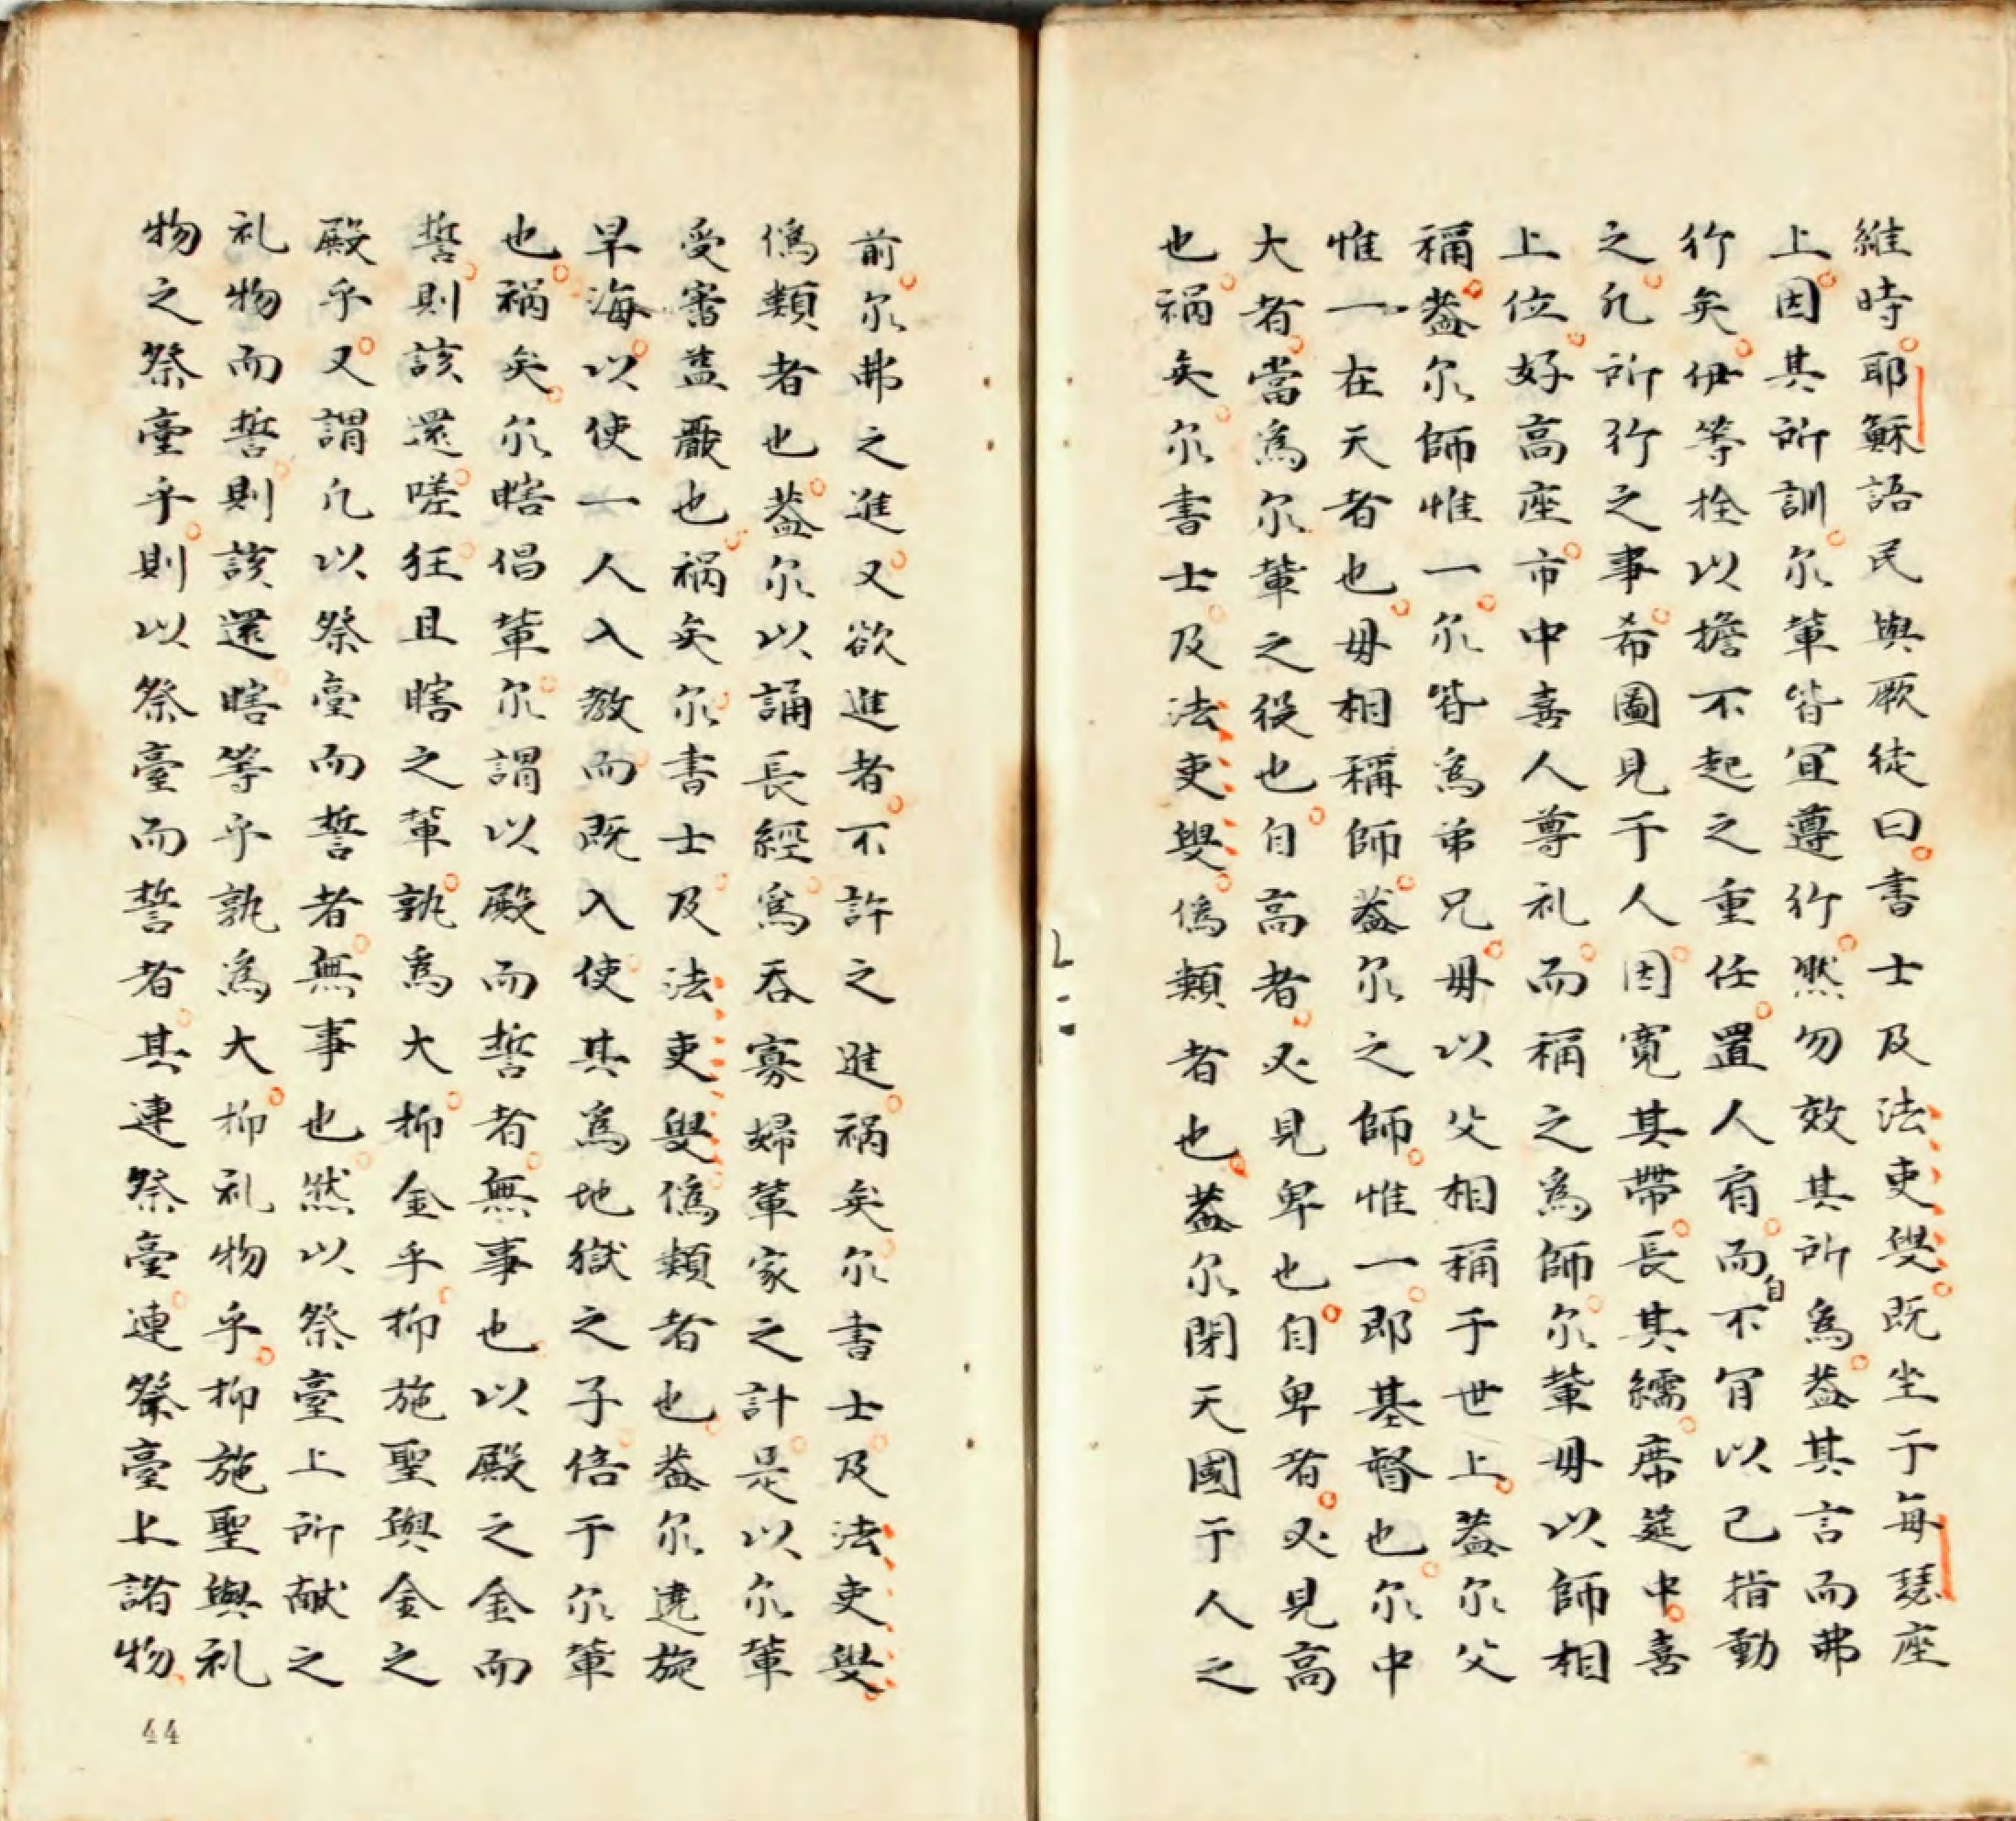 維時耶穌語民與厥徒曰書士及法吏叟既坐于每瑟座
上因其所訓尔軰皆宜遵行然勿效其所為葢其言而弗
行矣伊等拴以擔不起之重任置人肩而自不肎以己指動
之凢所行之事希圖見于人因寬其帶長其繻席筵中喜
上位好高座市中喜人尊礼而稱之為師尔軰毋以師相
稱葢尔師惟一尔皆為弟兄毋以父相稱于世上葢尔父
惟一在天者也毋相稱師葢尔之師惟一即基督也尔中
大者當為尔軰之役也自高者必見卑也自卑者必見高
也禍矣尔書士及法吏叟僞類者也葢尔閉天國于人之
前尔弗之進又欲進者不許之進禍矣尔書士及法吏叟
僞類者也葢尔以誦長經為吞寡婦軰家之計是以尔軰
受審葢嚴也禍矣尔書士及法吏叟僞類者也葢尔遶旋
旱海以使一人入教而既入使其為地獄之子倍于尔軰
也禍矣尔瞎倡軰尔謂以殿而誓者無事也以殿之金而
誓則該還嗟狂且瞎之軰孰為大抑金乎抑施聖與金之
殿乎又謂凢以祭臺而誓者無事也然以祭臺上所献之
礼物而誓則該還瞎等乎孰為大抑礼物乎抑施聖與礼
物之祭臺乎則以祭臺而誓者其連祭臺連祭臺上諸物
44